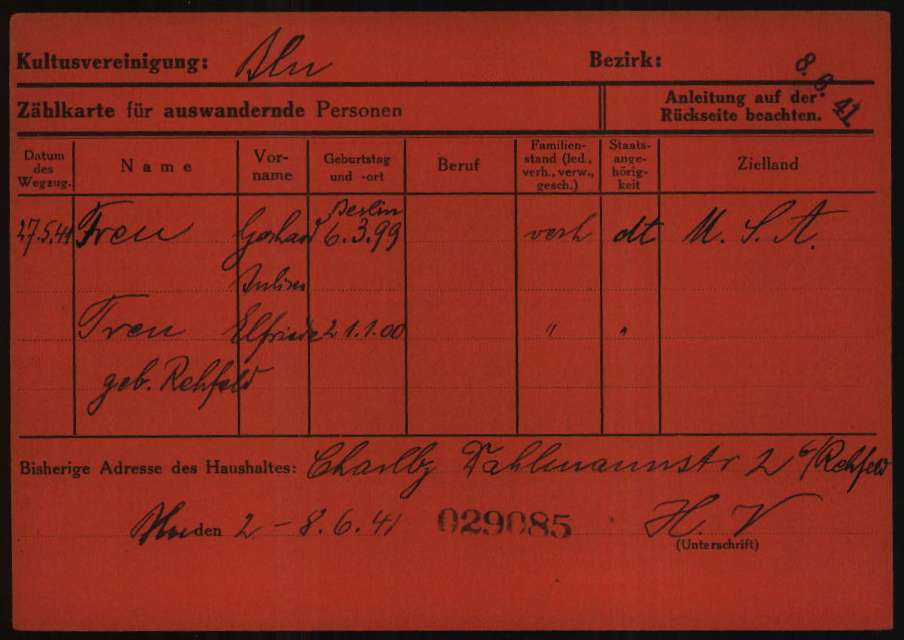 Kultusvereinigung: Bln Bezirk: 8. 6. 41
Zählkarte für auswandernde Personen
Anleitung auf der
Rückseite beachten.
Datum des Wegzug. Name Vor-name Geburtstag und -ort Beruf Familien-stand (led., verh., verw., gesch.) Staats-ange-hörig-keit Zielland
Berlin
27.5.41 Treu Gerhard 6.3.99 verh dt U.S.A.
Treu Elfriede 21.1.00 " "
geb. Rehfeld
Bisherige Adresse des Haushaltes: Charlbg Dahlmannstr 2 b/Rehfeld
Bln den 2-8.6.41 029085 H. V
(Unterschrift)